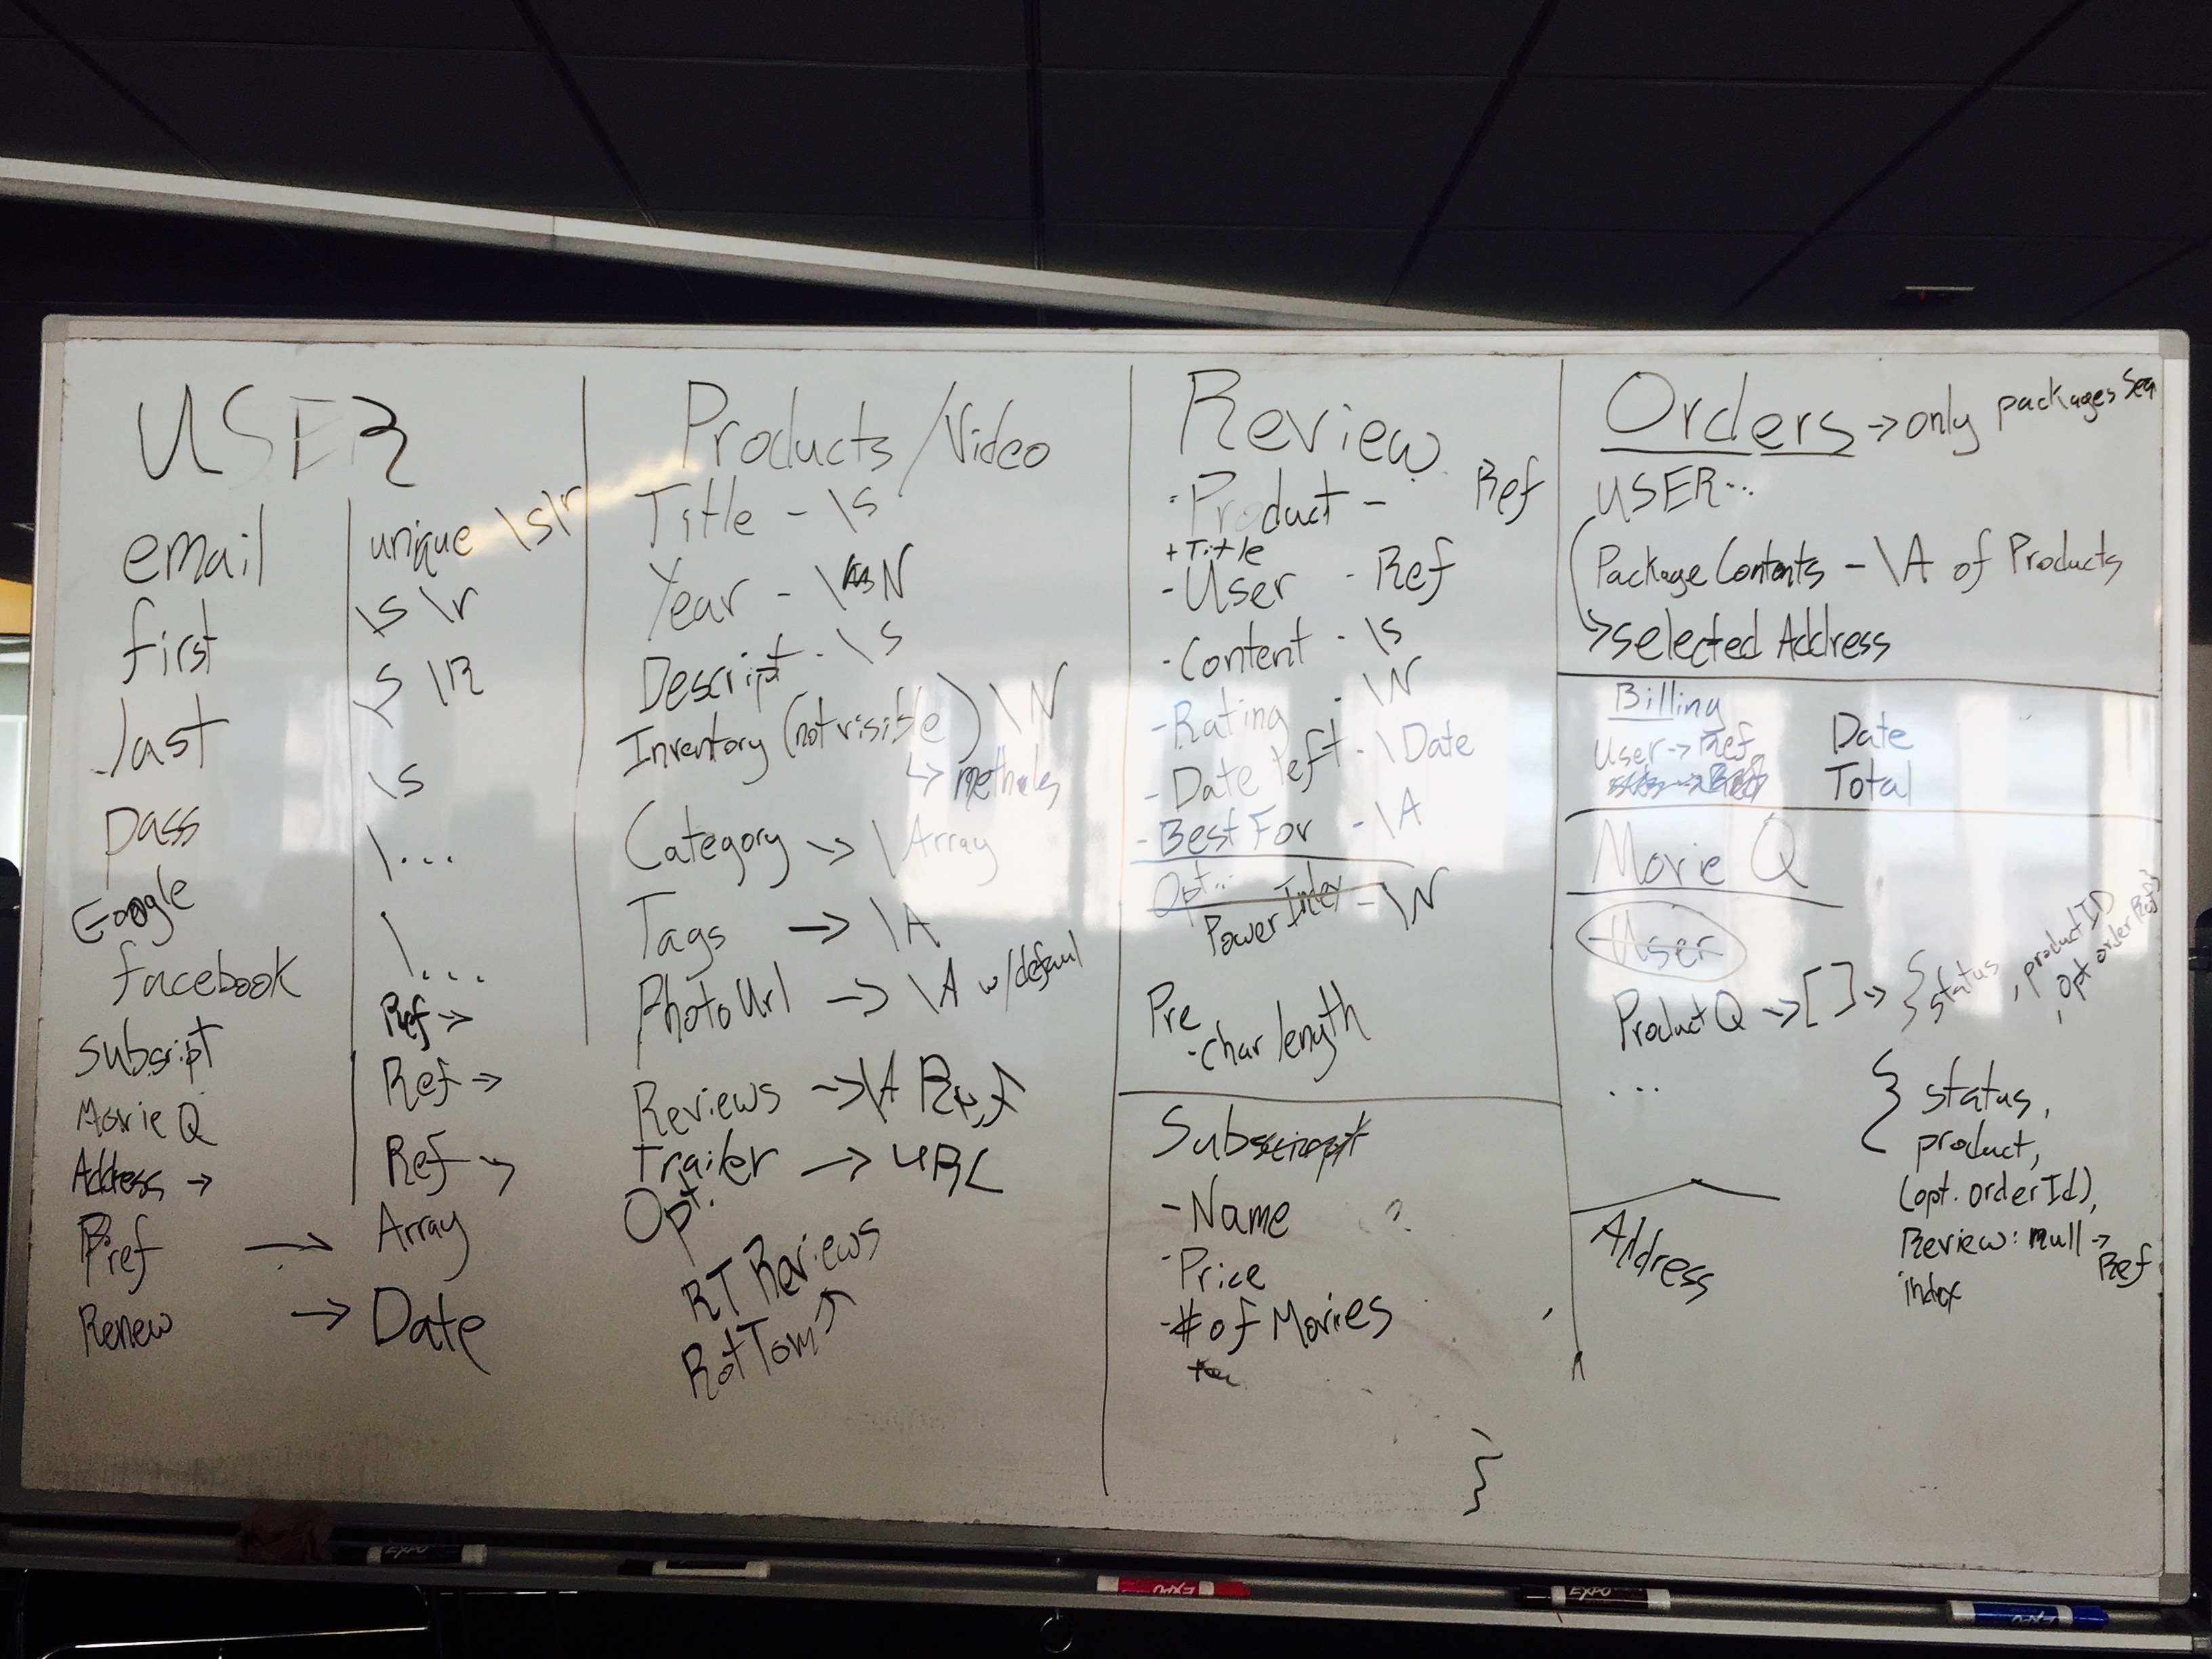 USER
email | unique \s\r
first \s \r
last \S \R
pass \s
Google \...
facebook \...
Subscript Ref →
Movie Q Ref →
Address → Ref →
Pref → Array
Renew → Date
Products/Video
Title - \s
Year - \N
Descript. - \s
Inventory (not visible) \N
↳ methods
Category → \Array
Tags → \A
PhotoUrl → \A w/defaul
Reviews → \A Ref
Trailer → URL
Opt.
RT Reviews
RotTom ↗
Review
- Product - Ref
+ Title
- User - Ref
- Content - \s
- Rating - \N
- Date left - \Date
- Best For - \A
Opt...
Power Index - \N
Pre
- Char length
Subscript
- Name ?
- Price
- # of Movies
}
Orders → only packages
USER...
Package Contents - \A of Products
→ selected Address
Billing
User → Ref Date
Total
Movie Q
User
Product Q → [ ] → { status, productID
, opt orderRef }
...
{ status,
product,
(opt. orderId),
Review: null →
Ref
index
Address
EXPO
EXPO
EXPO
EXPO